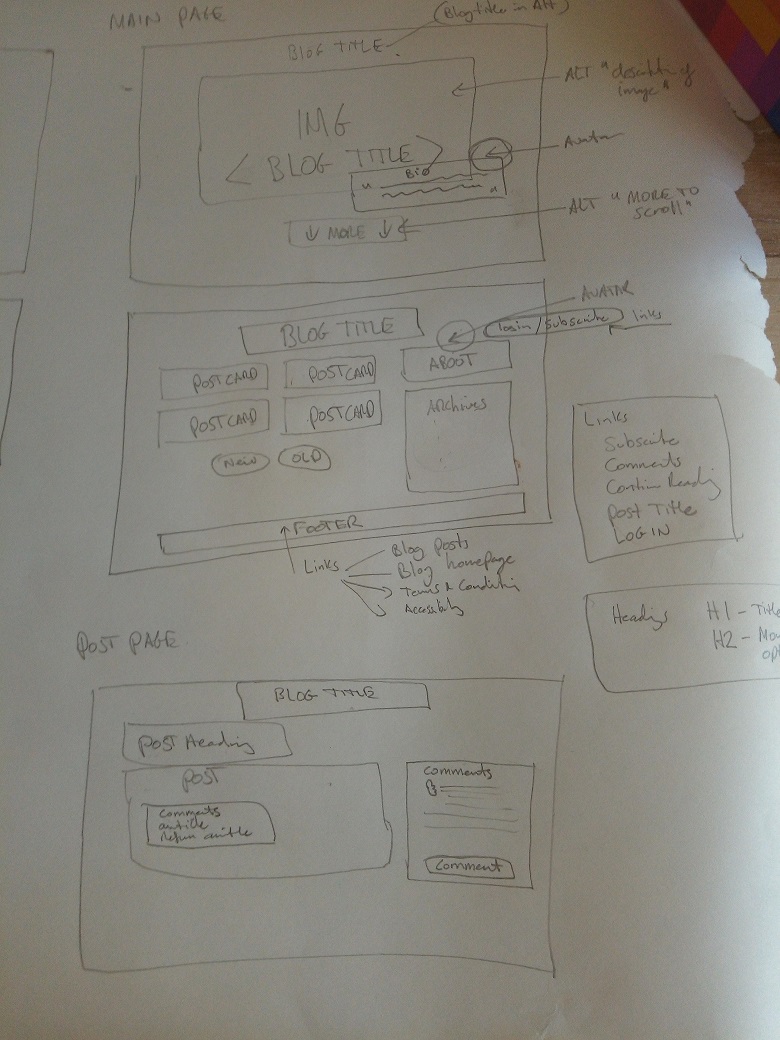 MAIN PAGE
(Blog title in Alt)
BLOG TITLE
ALT "description of
image"
IMG
< BLOG TITLE >
Avatar
BIO
ALT "MORE TO
scroll"
↓ MORE ↓
AVATAR
BLOG TITLE
login/Subscribe
links
ABOUT
POSTCARD
POSTCARD
POSTCARD
POSTCARD
Archives
New
OLD
FOOTER
Links
Blog posts
Blog homepage
Terms & Condition
Accessibility
Links
Subscribe
Comments
Continue Reading
Post Title
LOGIN
Headings
H1 - Title
H2 -
POST PAGE
BLOG TITLE
POST Heading
POST
comments
return
comments
Comment